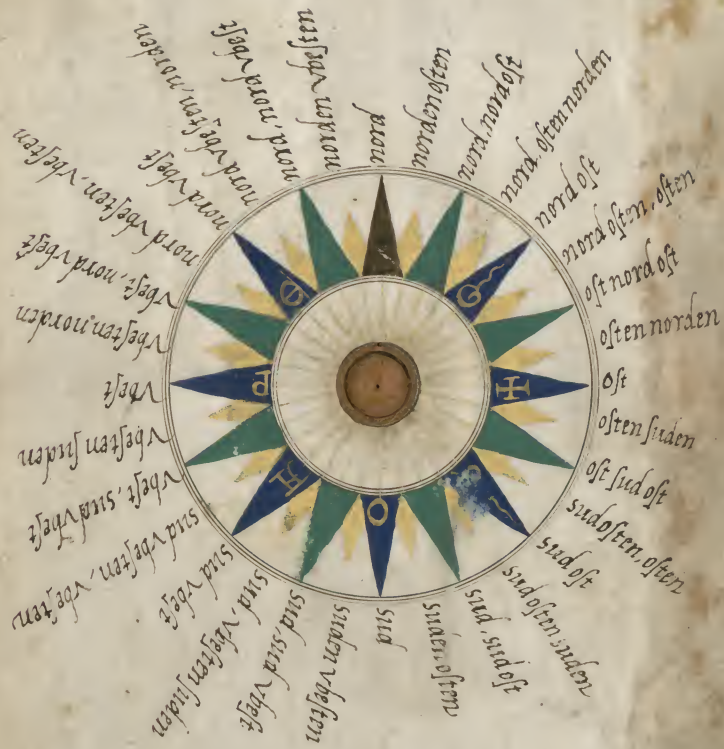 nord
norden osten
nord, nord ost
nord, osten norden
nord ost
nord osten, osten
ost nord ost
osten norden
ost
osten suden
ost sud ost
sud osten, osten
sud ost
sud osten suden
sud, sud ost
suden, osten
sud
suden vbesten
sud, sud vbest
sud, vbesten suden
sud vbest
sud vbesten, vbesten
vbest, sud vbest
vbesten suden
vbest
vbesten, norden
vbest, nord vbest
nord vbesten, vbesten
nord vbest
nord vbesten, norden
nord, nord vbest
norden vbesten